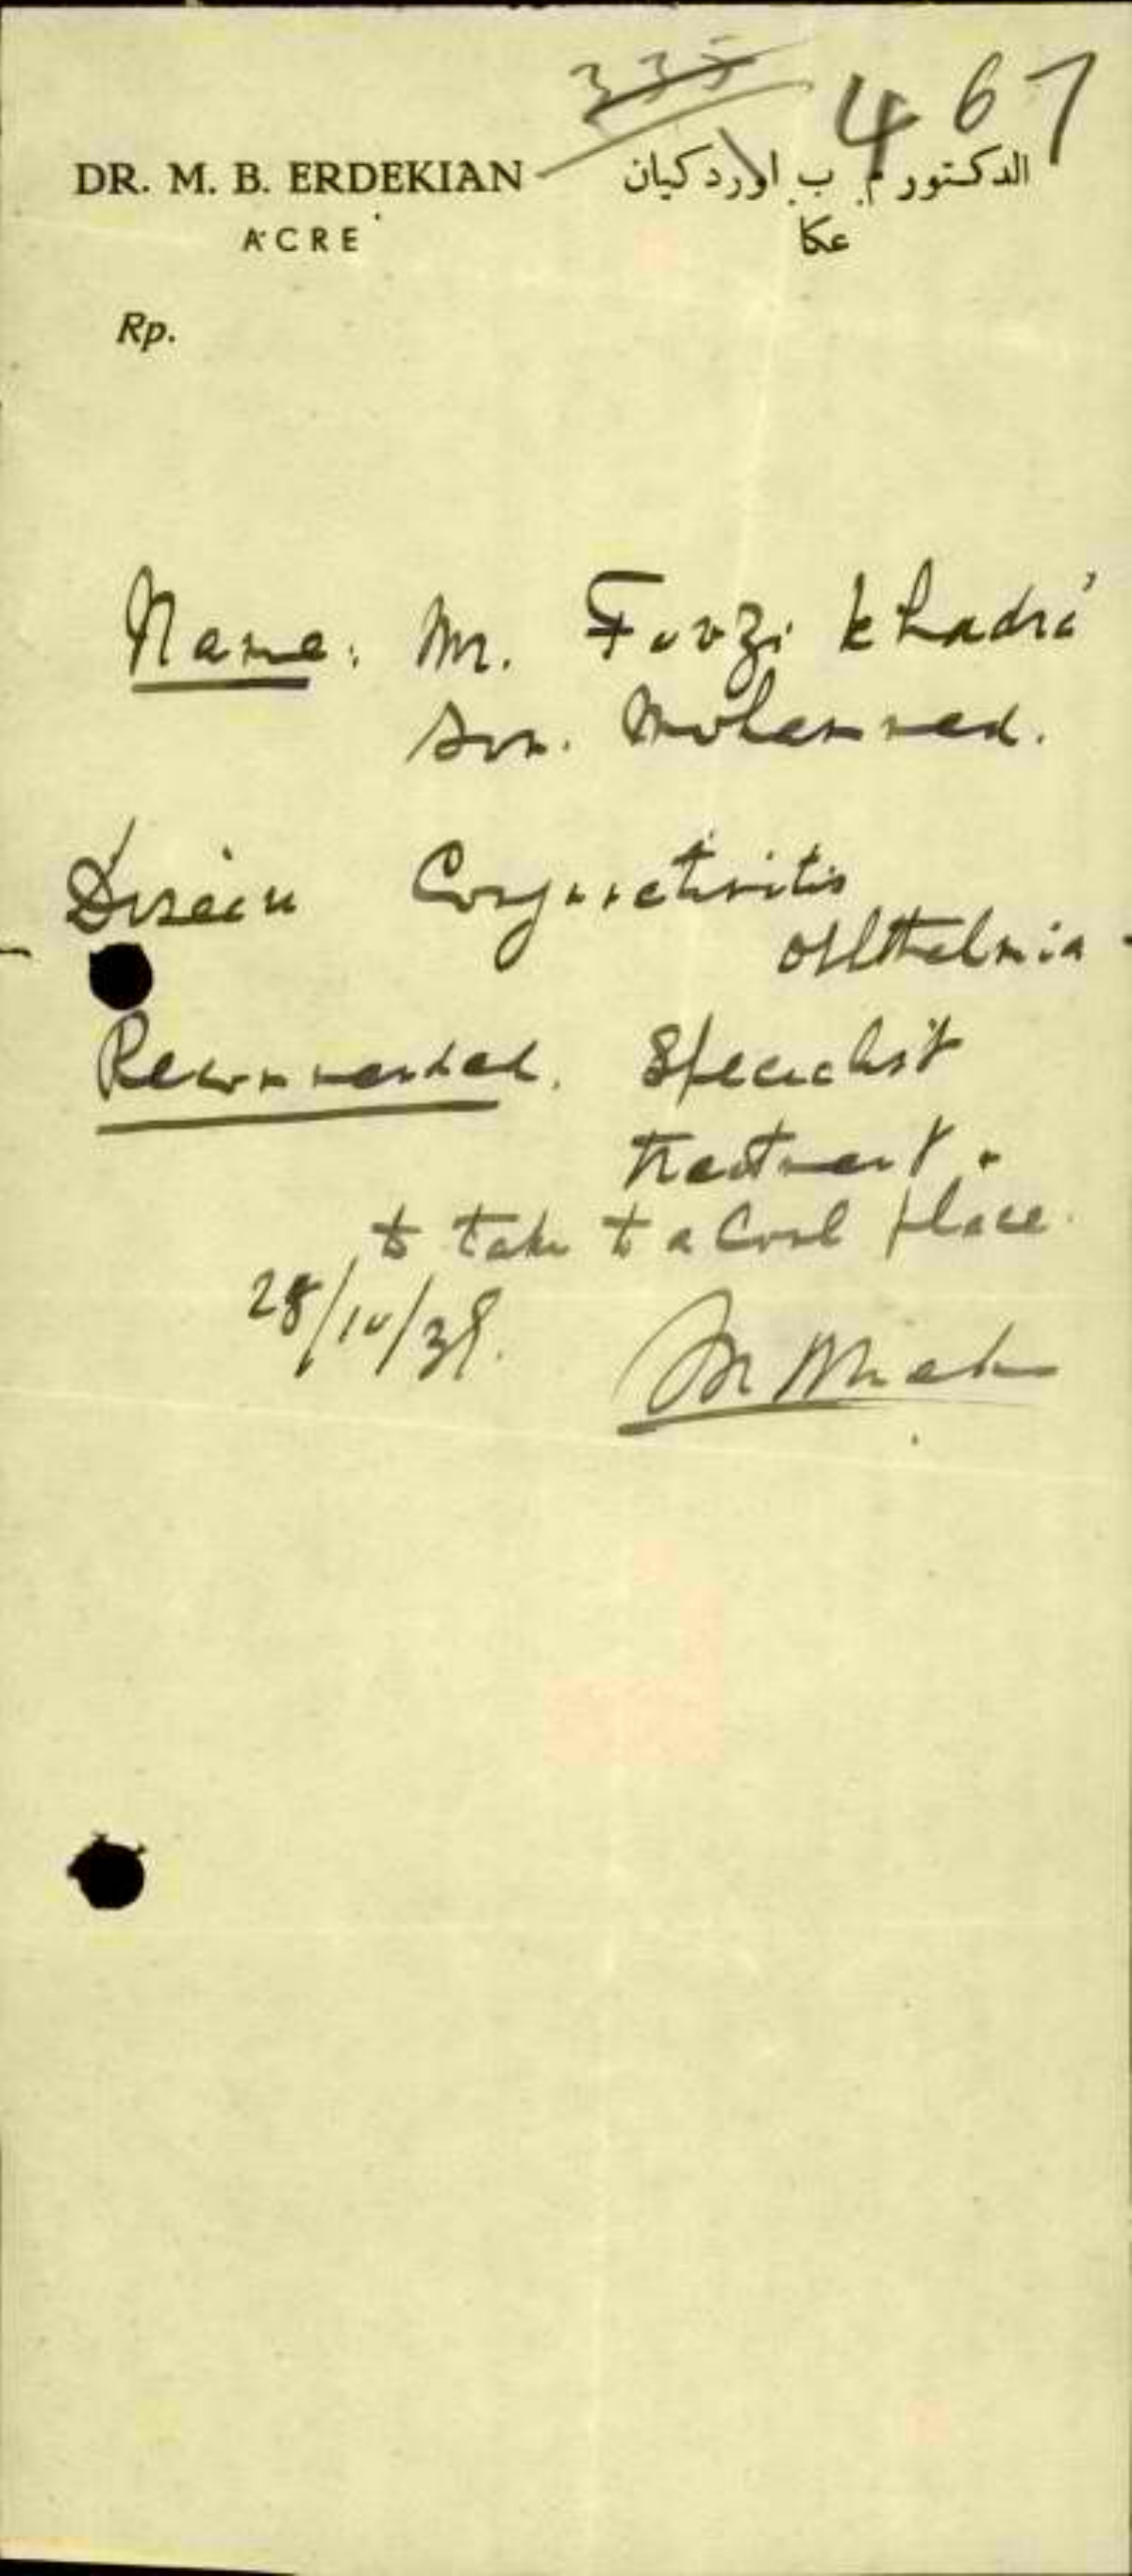 335
467
DR. M. B. ERDEKIAN
الدكتور م. ب. اردكيان
ACRE
عكا
Rp.
Name: Mr. Fovzi Khadra
Son. Mohammed.
Disease Conjunctivitis
Ophthelmia -
Recommended. Specialist
treatment.
to take to a Cool place
28/10/38.